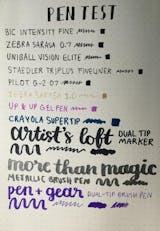 PEN TEST
BIC INTENSITY FINE
ZEBRA SARASA 0.7
UNIBALL VISION ELITE
STAEDLER TRIPLUS FINELINER
PILOT G-2 07
ZEBRA SARASA 1.0
UP & UP GEL PEN
CRAYOLA SUPERTIP
artist's loft DUAL TIP MARKER
more than magic
METALLIC BRUSH PEN
pen + gear DUAL-TIP BRUSH PEN